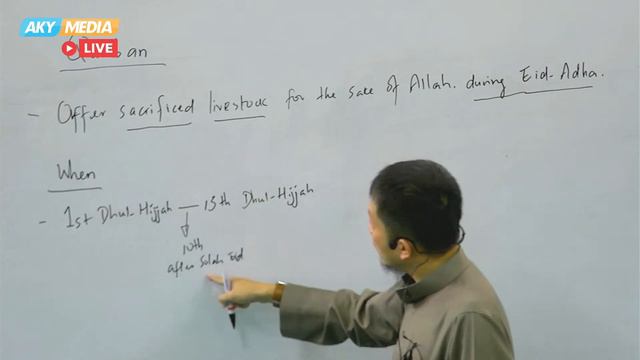 AKY MEDIA
LIVE
- Offer sacrificed livestock for the sake of Allah. during Eid-Adha.
When
- 1st Dhul-Hijjah — 13th Dhul-Hijjah
10th
after Solah Eid